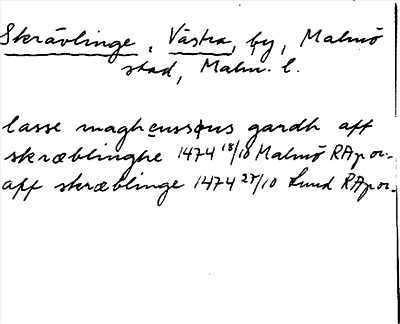 Skrävlinge, Västra, by, Malmö
stad, Malm. l.
lasse maghenssøns gardh aff
skræblinghe 1474 18/10 Malmö RAp or.
aff skræblinge 1474 25/10 Lund RAp or.